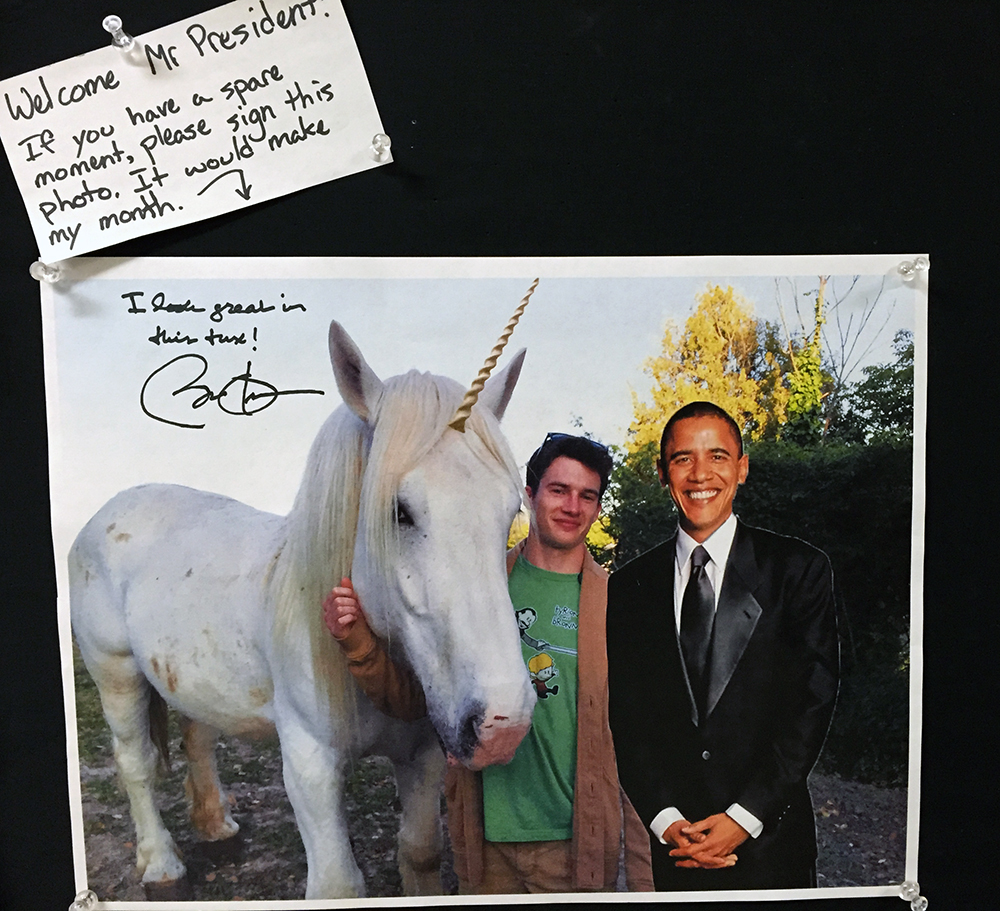 Welcome Mr President!
If you have a spare
moment, please sign this
photo. It would make
my month.
I look great in
this tux!